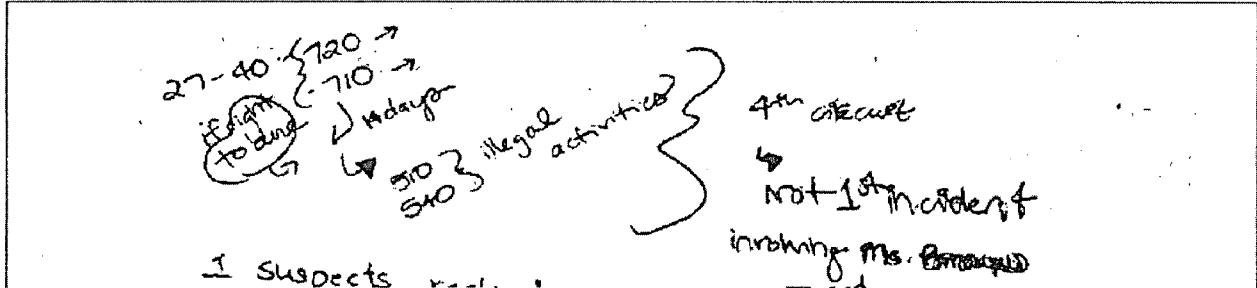 27-40 { 720 →
710 →
if right to cure
14 days
510
540 } illegal activities
4th circuit
↳ Not 1st incident
involving Ms.
1 suspects